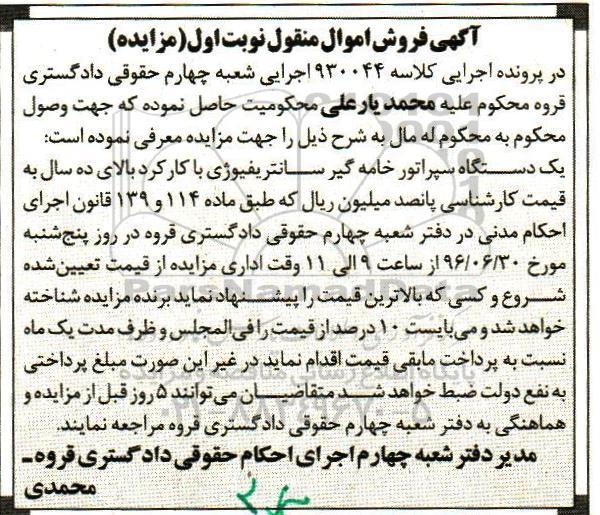 آگهی فروش اموال منقول نوبت اول (مزایده)
در پرونده اجرایی کلاسه ۹۳۰۰۴۴ اجرایی شعبه چهارم حقوقی دادگستری
قروه محکوم علیه محمد یارعلی محکومیت حاصل نموده که جهت وصول
محکوم به محکوم له مال به شرح ذیل را جهت مزایده معرفی نموده است:
یک دستگاه سپراتور خامه گیر سانتریفیوژی با کارکرد بالای ده سال به
قیمت کارشناسی پانصد میلیون ریال که طبق ماده ۱۱۴ و ۱۳۹ قانون اجرای
احکام مدنی در دفتر شعبه چهارم حقوقی دادگستری قروه در روز پنج‌شنبه
مورخ ۹۶/۰۶/۳۰ از ساعت ۹ الی ۱۱ وقت اداری مزایده از قیمت تعیین‌شده
شروع و کسی که بالاترین قیمت را پیشنهاد نماید برنده مزایده شناخته
خواهد شد و می‌بایست ۱۰ درصد از قیمت را فی‌المجلس و ظرف مدت یک ماه
نسبت به پرداخت مابقی قیمت اقدام نماید در غیر این صورت مبلغ پرداختی
به نفع دولت ضبط خواهد شد متقاضیان می‌توانند ۵ روز قبل از مزایده و
هماهنگی به دفتر شعبه چهارم حقوقی دادگستری قروه مراجعه نمایند.
مدیر دفتر شعبه چهارم اجرای احکام حقوقی دادگستری قروه ـ
محمدی
ParsNamadData
پایگاه اطلاع رسانی مناقصه و مزایده
۰۲۱-۸۸۳۴۹۶۷۰-۵